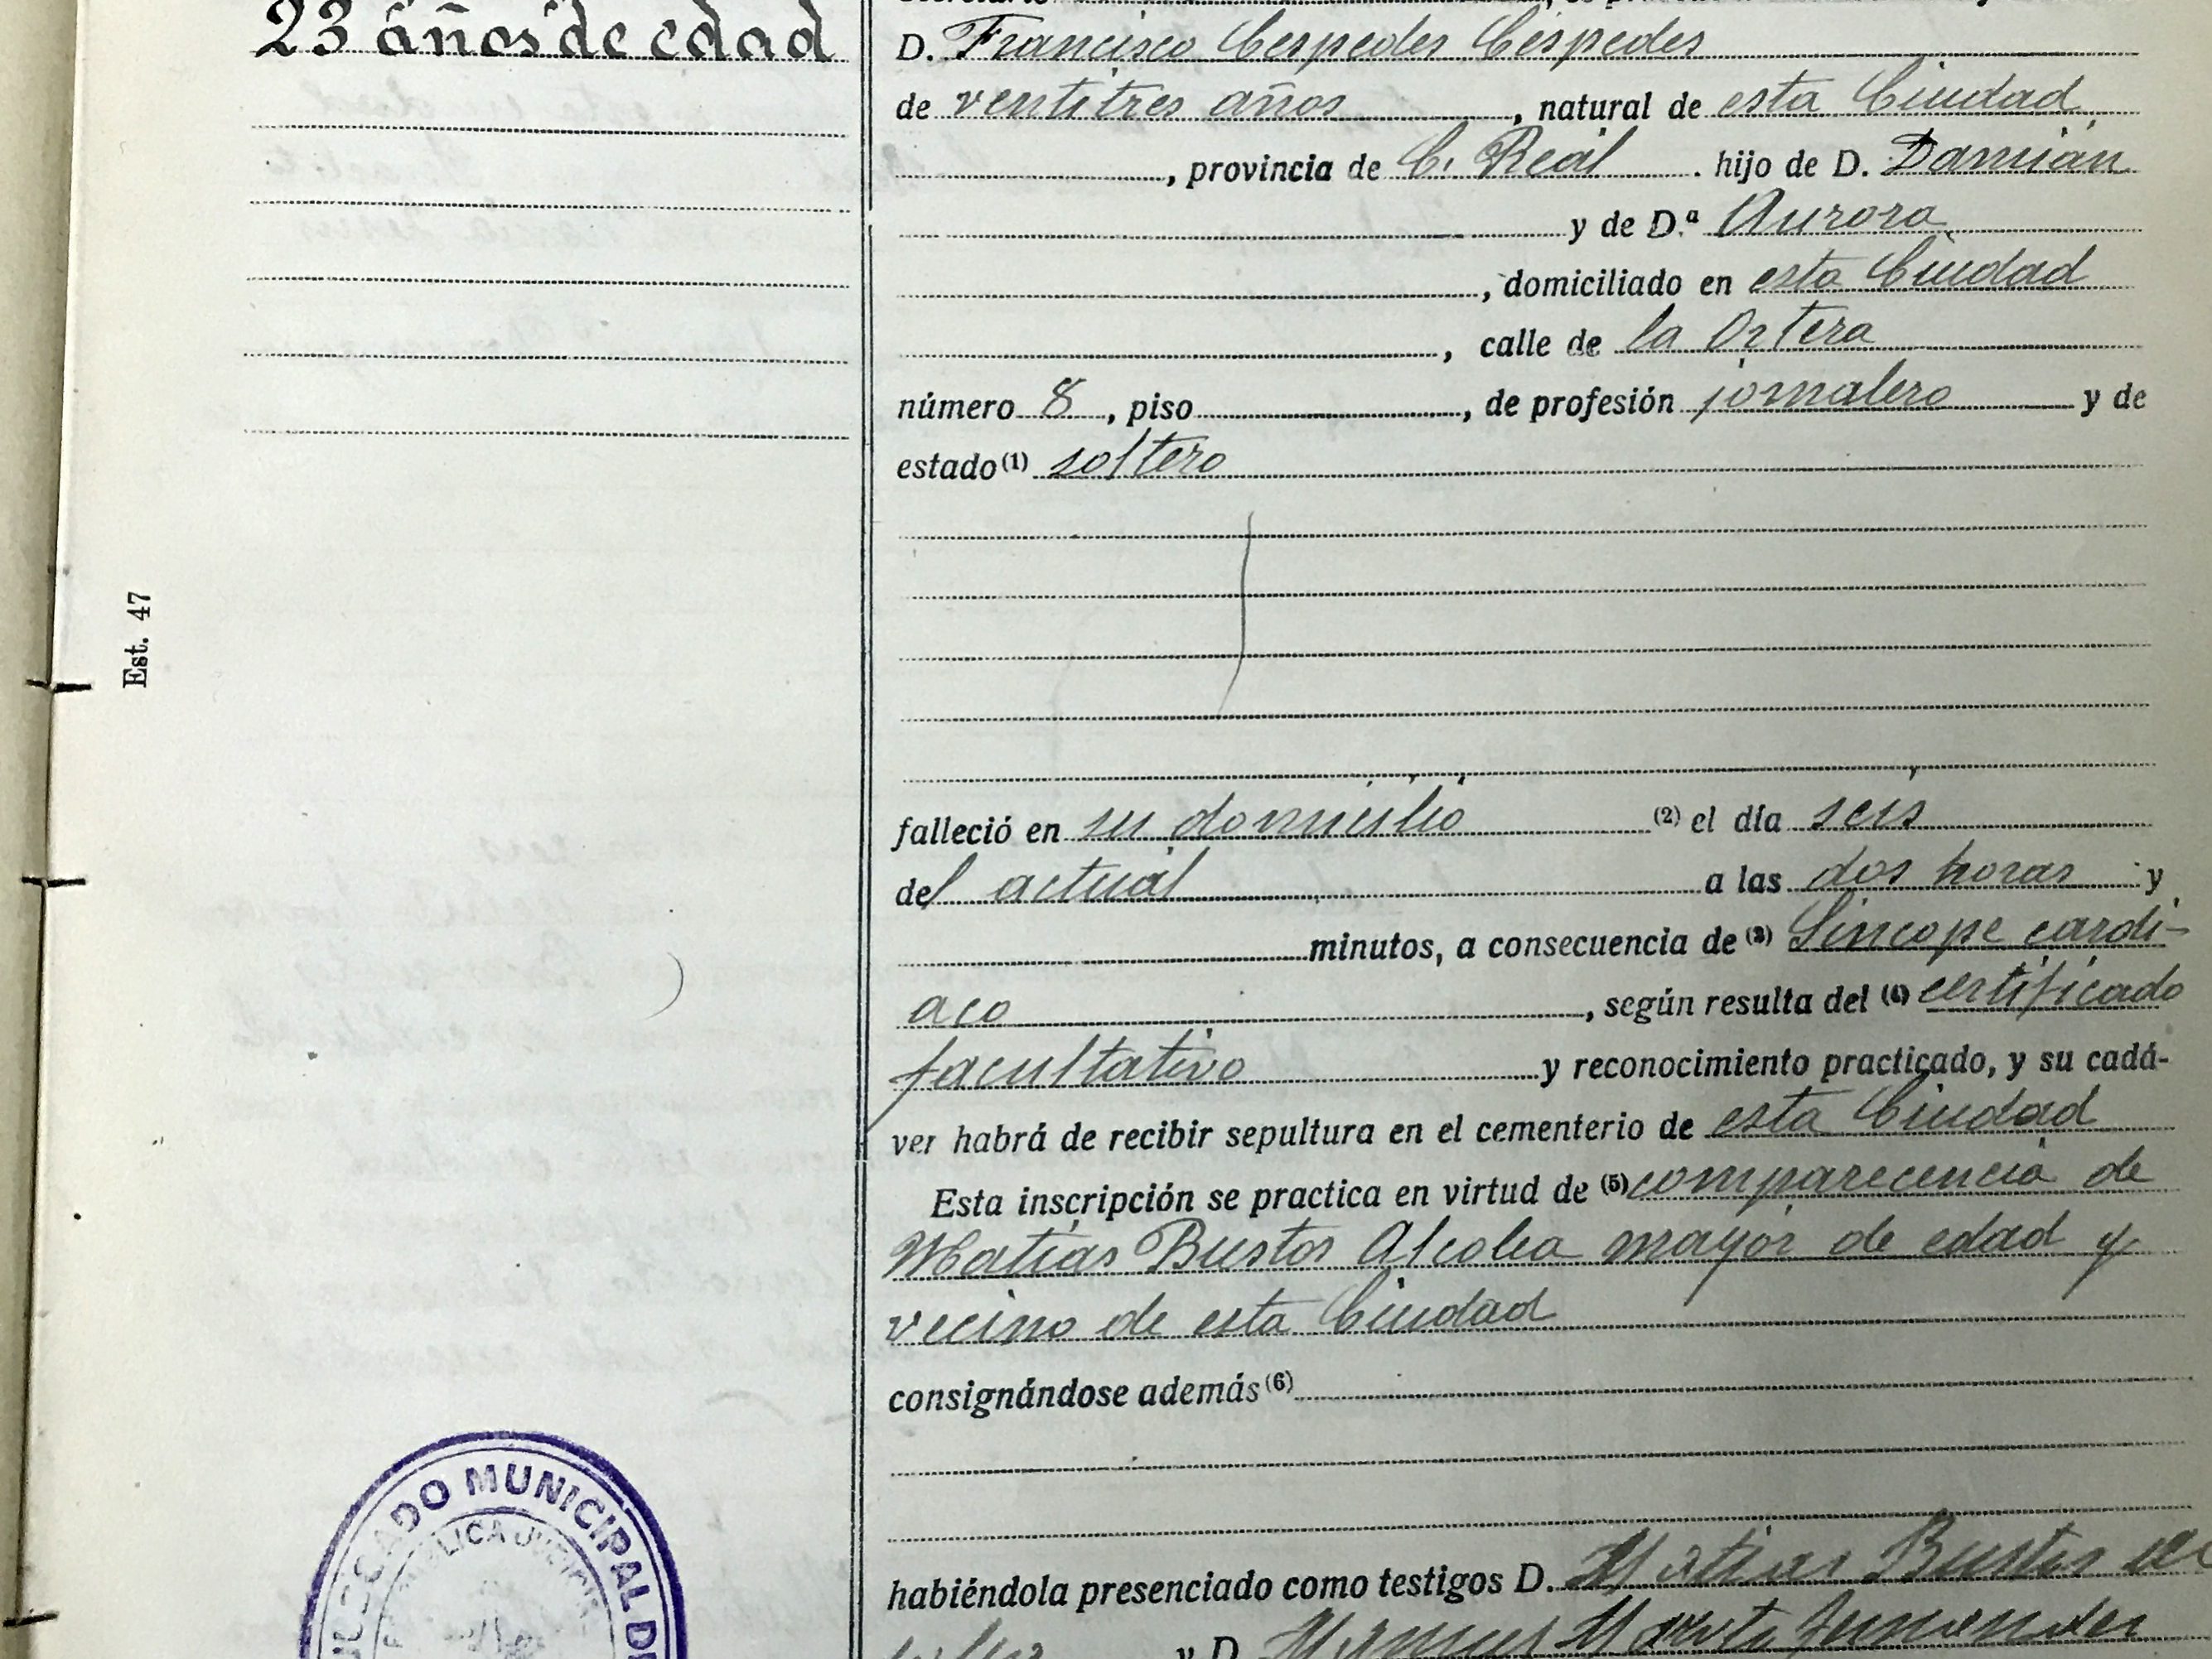 23 años de edad
D. Francisco Cespedes Céspedes
de ventitres años, natural de esta Ciudad
, provincia de C. Real. hijo de D. Damián
y de D.ª Aurora
, domiciliado en esta Ciudad
, calle de la Ortera
número 8, piso, de profesión jornalero y de
estado (1) soltero
Est. 47
falleció en su domicilio (2) el día seis
del actual a las dos horas y
minutos, a consecuencia de (3) Síncope cardi-
aco, según resulta del (4) certificado
facultativo y reconocimiento practicado, y su cadá-
ver habrá de recibir sepultura en el cementerio de esta Ciudad
Esta inscripción se practica en virtud de (5) comparecencia de
Matías Bustos Alcolea mayor de edad y
vecino de esta Ciudad
consignándose además (6)
JUZGADO MUNICIPAL DE
habiéndola presenciado como testigos D. Matias Bustos
y D.